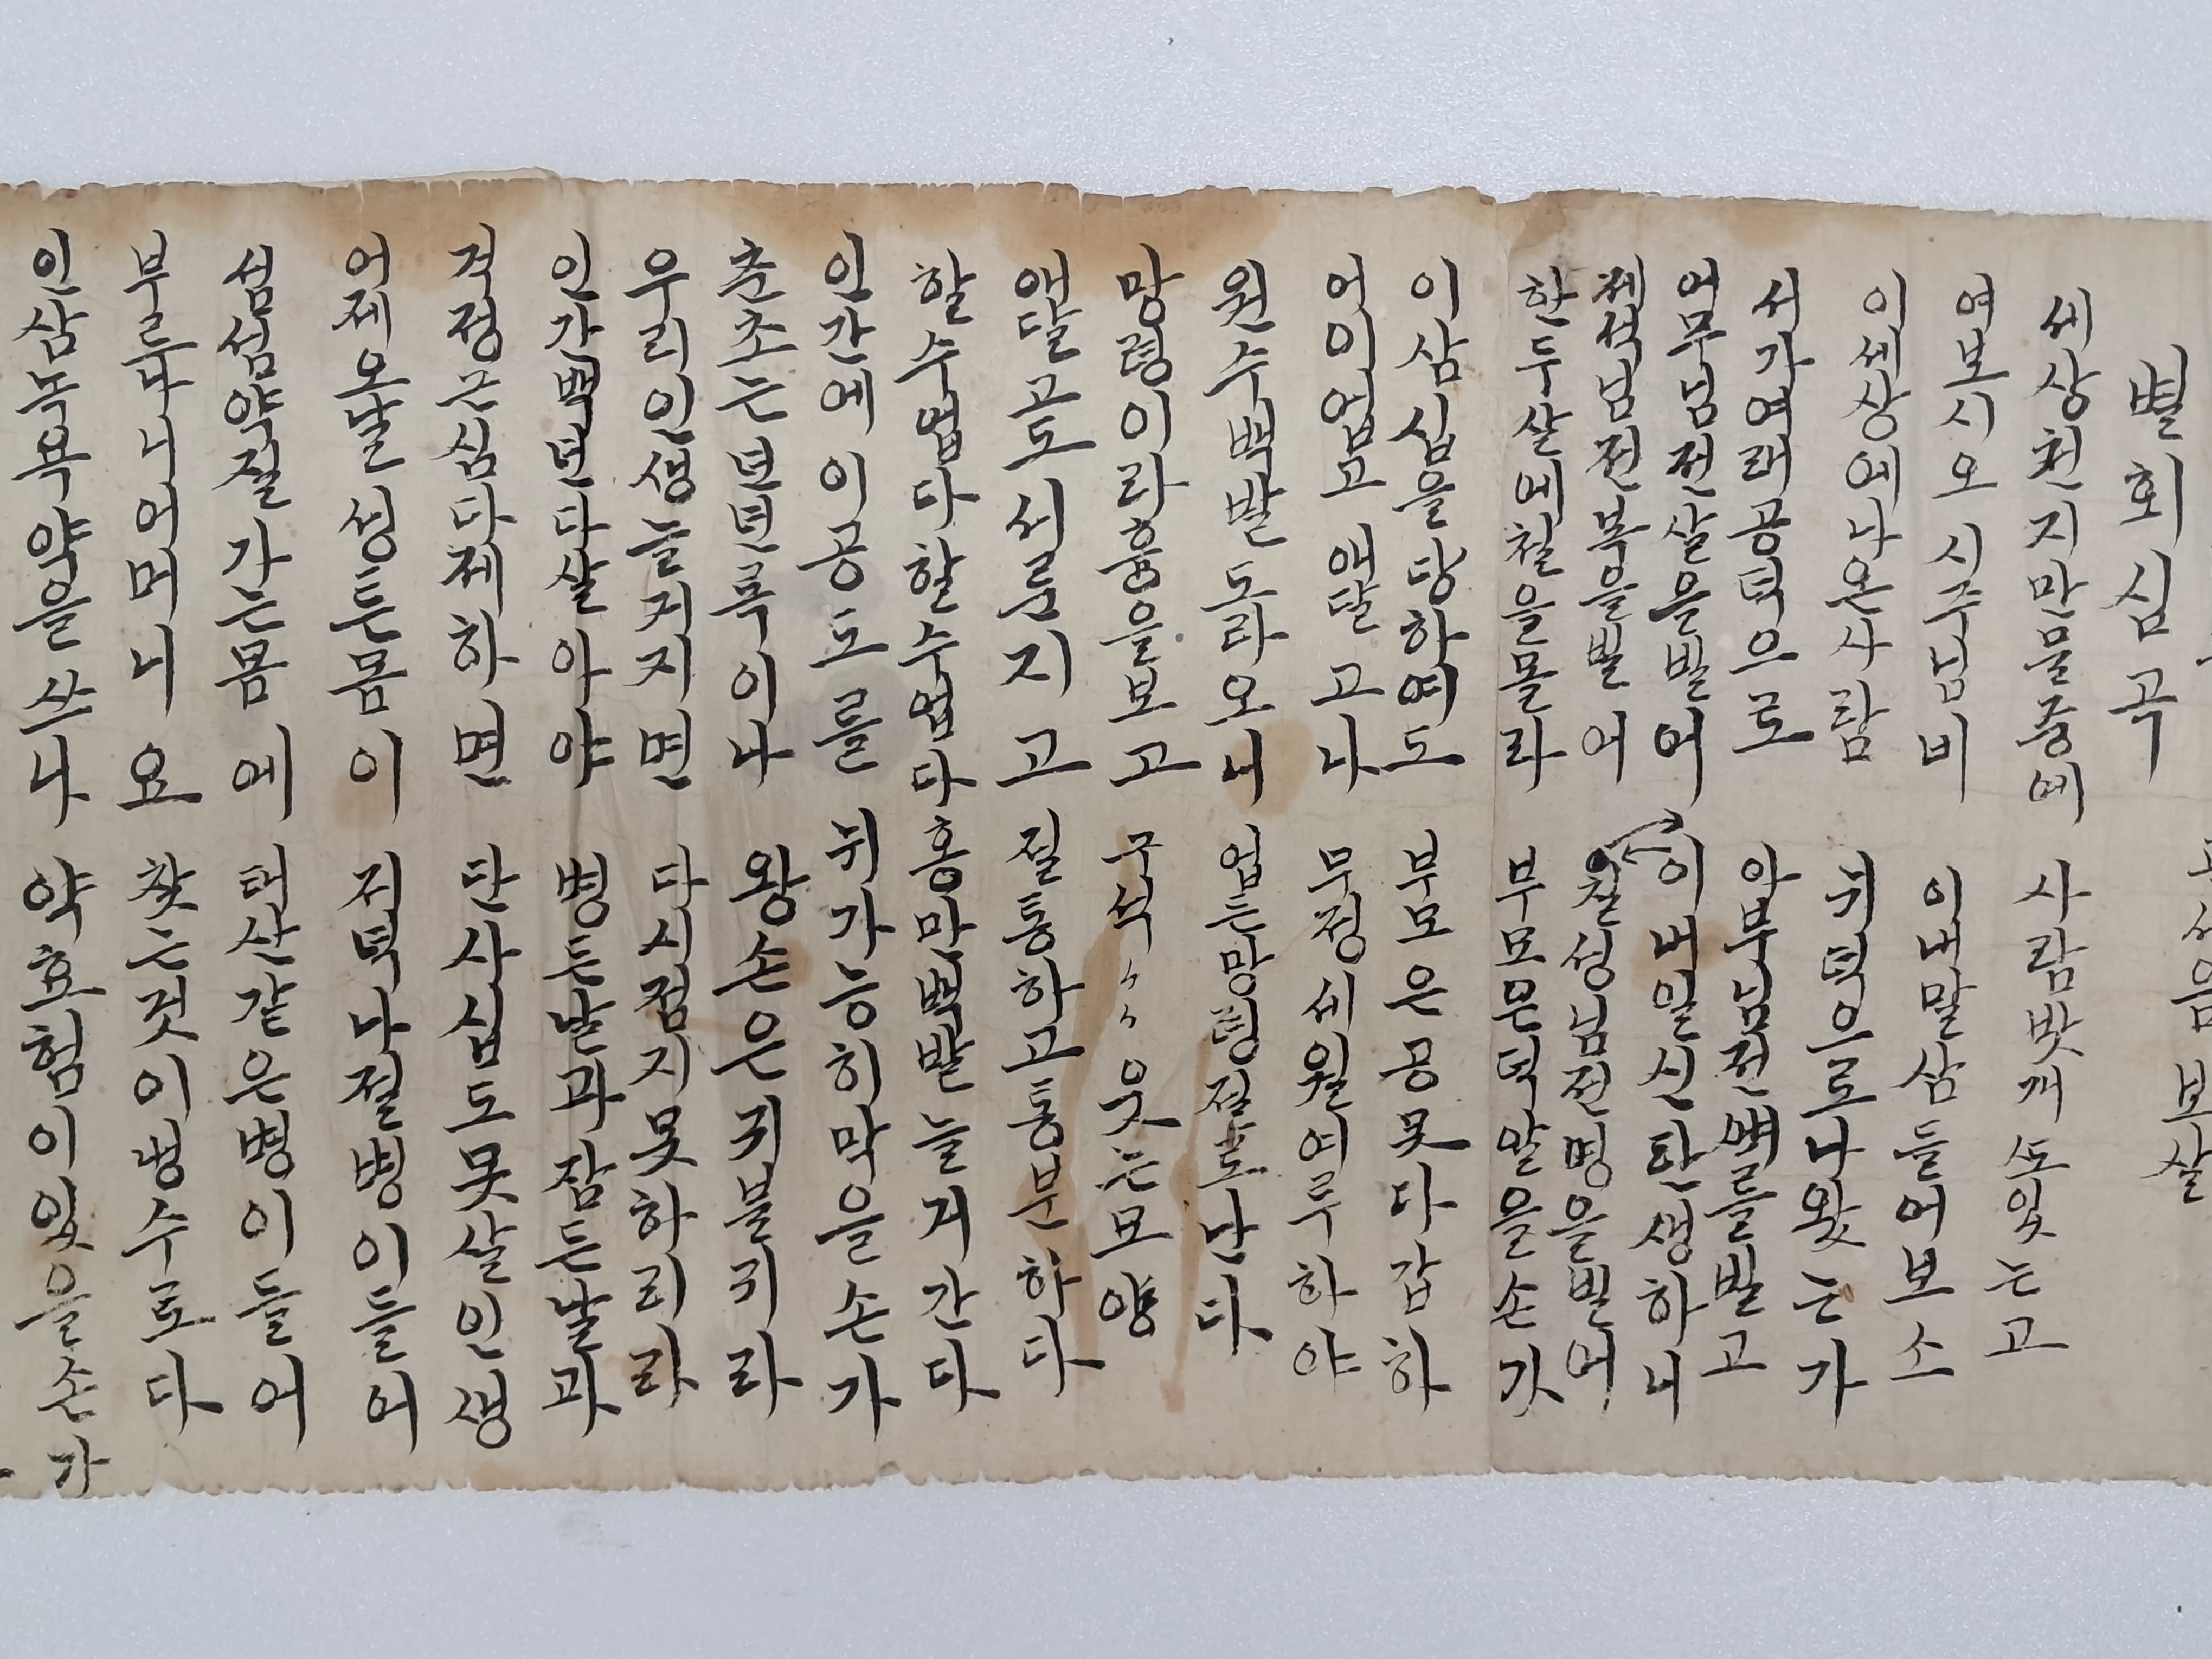 음보살
별회심곡
세상천지만물중에 사람밧게 또잇는고
여보시오시주님비 이내말삼들어보소
이세상에나온사람 뉘덕으로나왓는가
서가여래공덕으로 아부님전뼈를빌고
어무님전살을빌어 이내일신탄생하니
제석님전복을빌어 칠성님전명을빌어
한두살에철을몰라 부모은덕알을손가
이삼십을당하여도 부모은공못다갑하
어이업고애달고나 무정세월여루하야
원수백발도라오니 업든망령절로난다
망령이라흉을보고 구석〃〃웃는모양
애달고도선른지고 절통하고통분하다
할수업다할수업다 홍만백발늘거간다
인간에이공도를 뉘가능히막을손가
춘초는년년록이나 왕손은귀불귀라
우리인생늘지지면 다시점지못하리라
인간백년다살아야 병든날과잠든날과
걱정근심다제하면 단사십도못살인생
어제오날성든몸이 저녁나절병이들어
섬섬약질가는몸에 태산같은병이들어
부르나니어머니요 찾는것이냉수로다
인삼녹용약을쓰나 약효험이잇을손가